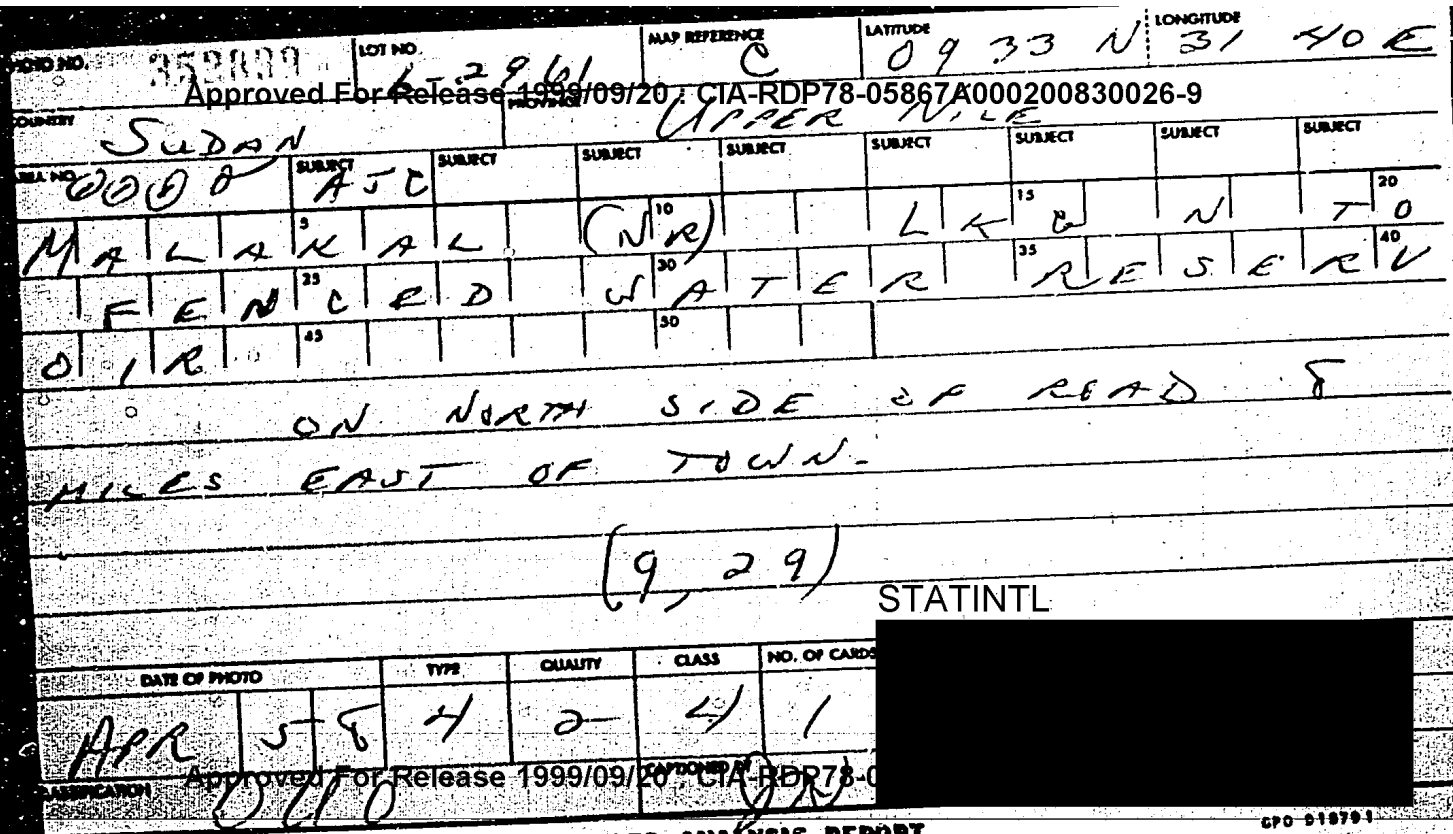 PHOTO NO. 359899 LOT NO. L-2961 MAP REFERENCE C LATITUDE 0933 N LONGITUDE 31 40 E
Approved For Release 1999/09/20 : CIA-RDP78-05867A000200830026-9
COUNTRY SUDAN PROVINCE UPPER NILE
AREA NO. 0000 SUBJECT AJC SUBJECT SUBJECT SUBJECT SUBJECT SUBJECT SUBJECT SUBJECT
MALAKAL (NR) LKG N TO
FENCED WATER RESERV
OIR
ON NORTH SIDE OF ROAD 8
MILES EAST OF TOWN.
(9, 29)
STATINTL
DATE OF PHOTO TYPE QUALITY CLASS NO. OF CARDS
APR 58 4 2 4 1
Approved For Release 1999/09/20 : CIA-RDP78-0
CLASSIFICATION CAPTIONED BY
REPORT
GPO 918791